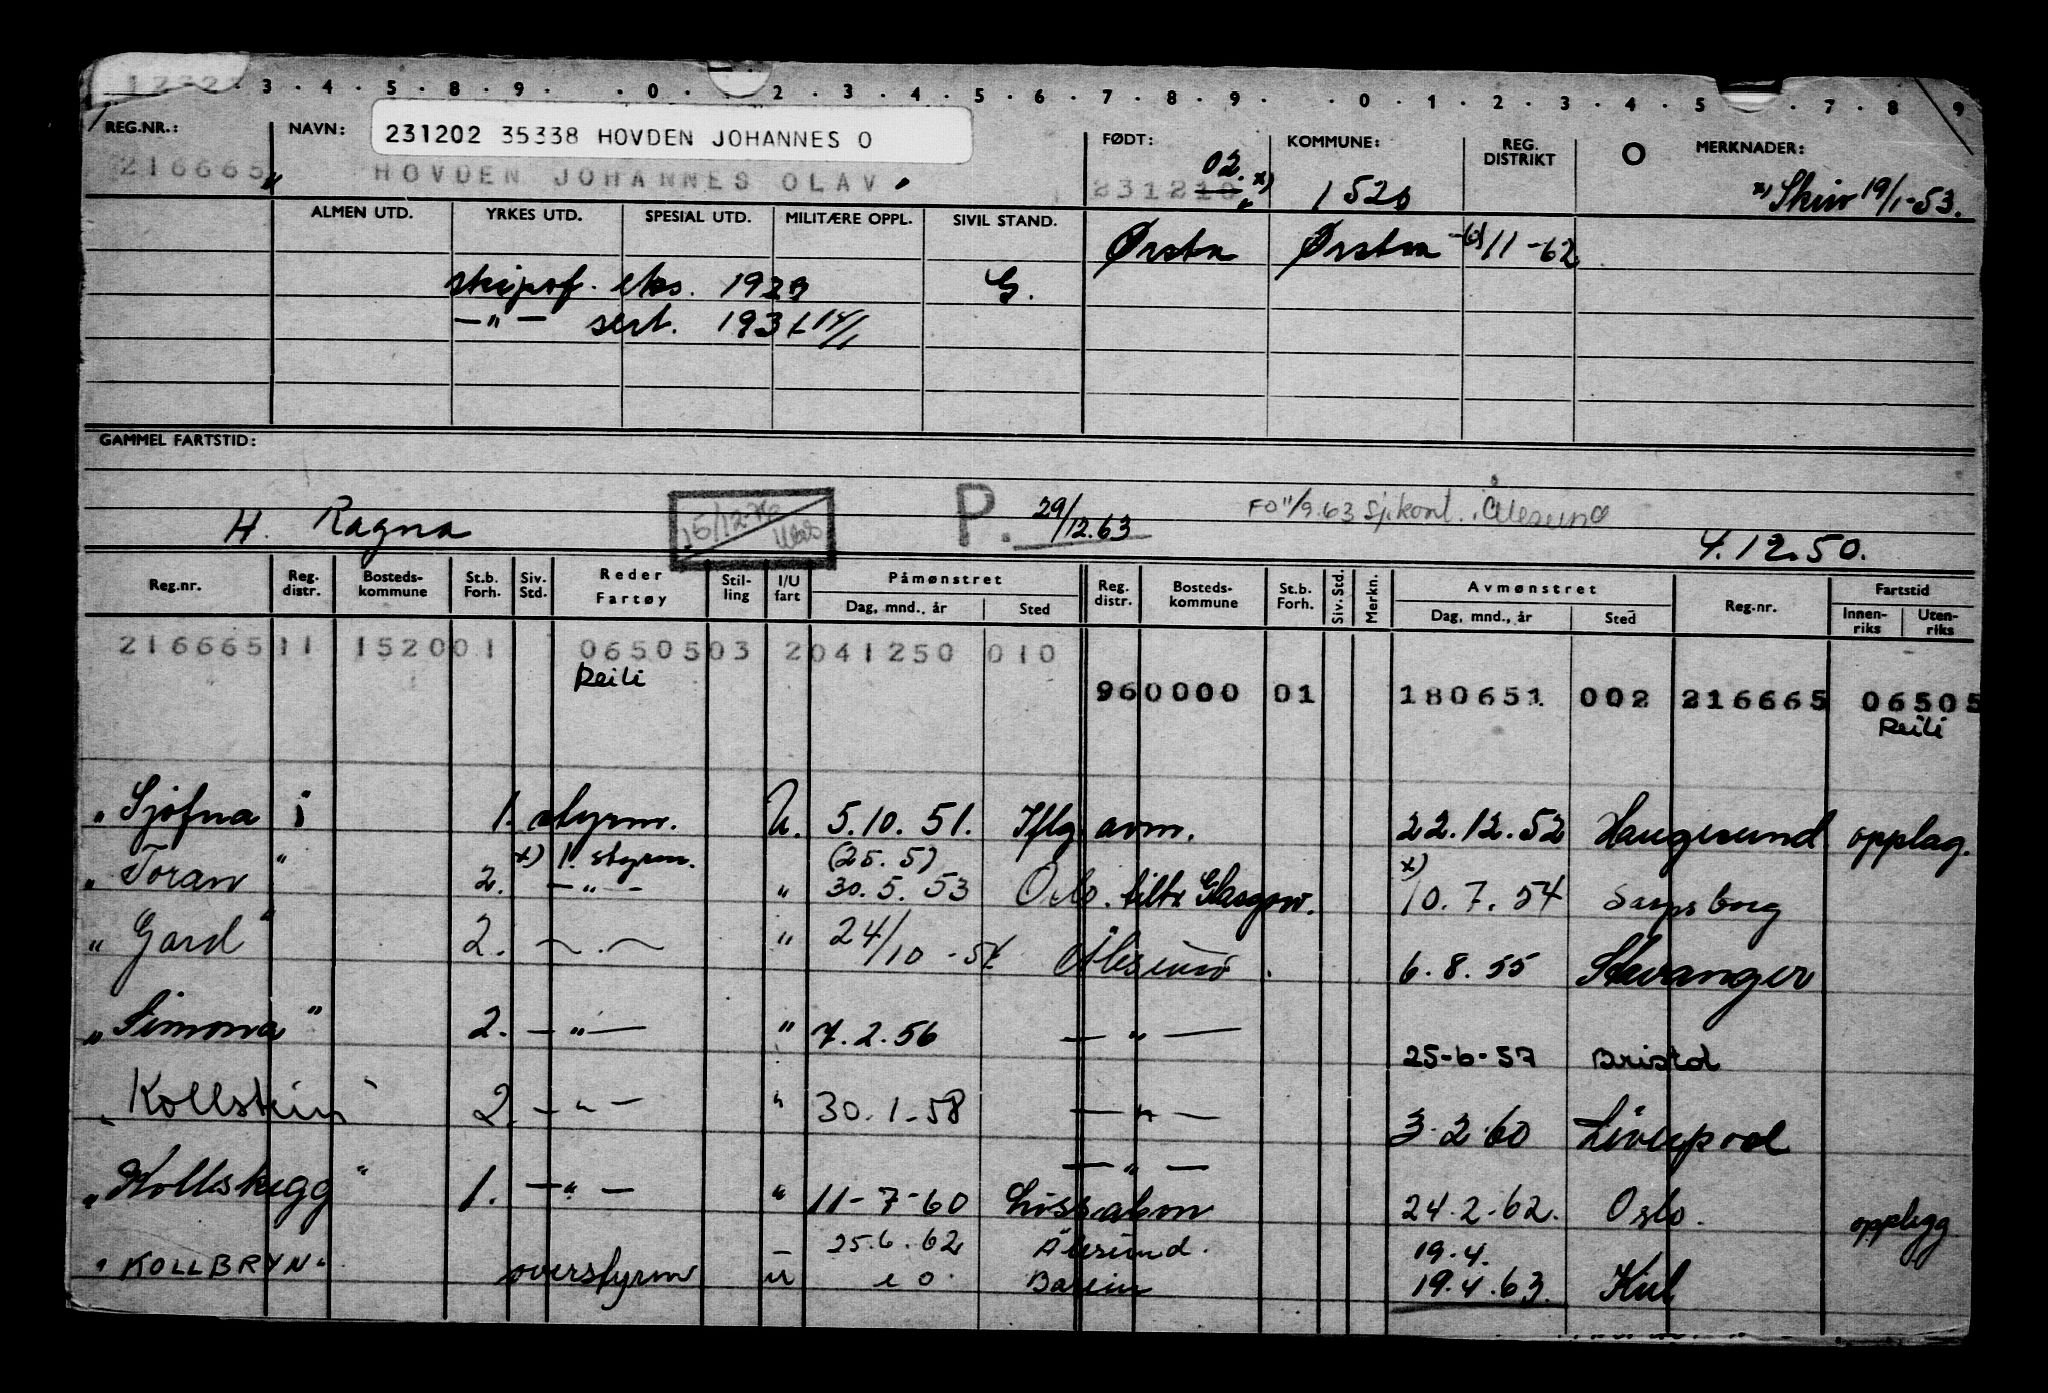 3 . 4 . 5 . 8 . 9 . . 0 . . 2 . 3 . 4 . 5 . 6 . 7 . 8 . 9 . . 0 . 1 . 2 . 3 . 4 . 5 . 7 . 8 . 9
REG.NR.: NAVN: 231202 35338 HOVDEN JOHANNES O FØDT: KOMMUNE: REG. DISTRIKT O MERKNADER:
216665 HOVDEN JOHANNES OLAV 231210 02. x) 1520 x) Skiv 19/1-53.
ALMEN UTD. YRKES UTD. SPESIAL UTD. MILITÆRE OPPL. SIVIL STAND.
Ørsta Ørsta 11-62
skipsf. eks. 1923 G.
— " — sert. 1931
GAMMEL FARTSTID:
H. Ragna 15/12-76 P. 29/12.63 FO 11/9.63 Sjkont. i Ålesund 4.12.50.
Reg.nr. Reg. distr. Bosteds-kommune St.b. Forh. Siv. Std. Reder Fartøy Stil-ling I/U fart Påmønstret Reg. distr. Bosteds-kommune St.b. Forh. Siv. Std. Merkn. Avmønstret Reg.nr. Fartstid
Dag, mnd., år Sted Dag, mnd., år Sted Innen-riks Uten-riks
216665 11 1520 01 06505 03 2 041250 010
Reili
960000 01 180651 002 216665 06505
Reili
" Sjofna i 1. styrm. U. 5.10.51. Iflg avm. 22.12.52 Haugesund opplag.
x) 1. styrm. (25.5) x)
" Toran " 2. — " — " 30.5.53 Oslo. tiltr Glasgow. 10.7.54 Sarpsborg
" Gard " 2. " 24/10-54 Ålesund. 6.8.55 Stavanger
" Simona " 2. — " — " 7.2.56 — " — 25-6-57 Bristol
" Kollstein " 2. — " — " 30.1.58 — " — 3.2.60 Liverpool
— " —
" Kollskegg " 1. — " — " 11-7-60 Lissabon 24.2.62. Oslo. opplegg
25.6.62 Ålesund. 19.4.
" KOLLBRYN " overstyrm u Barein 19.4.63. Kiel